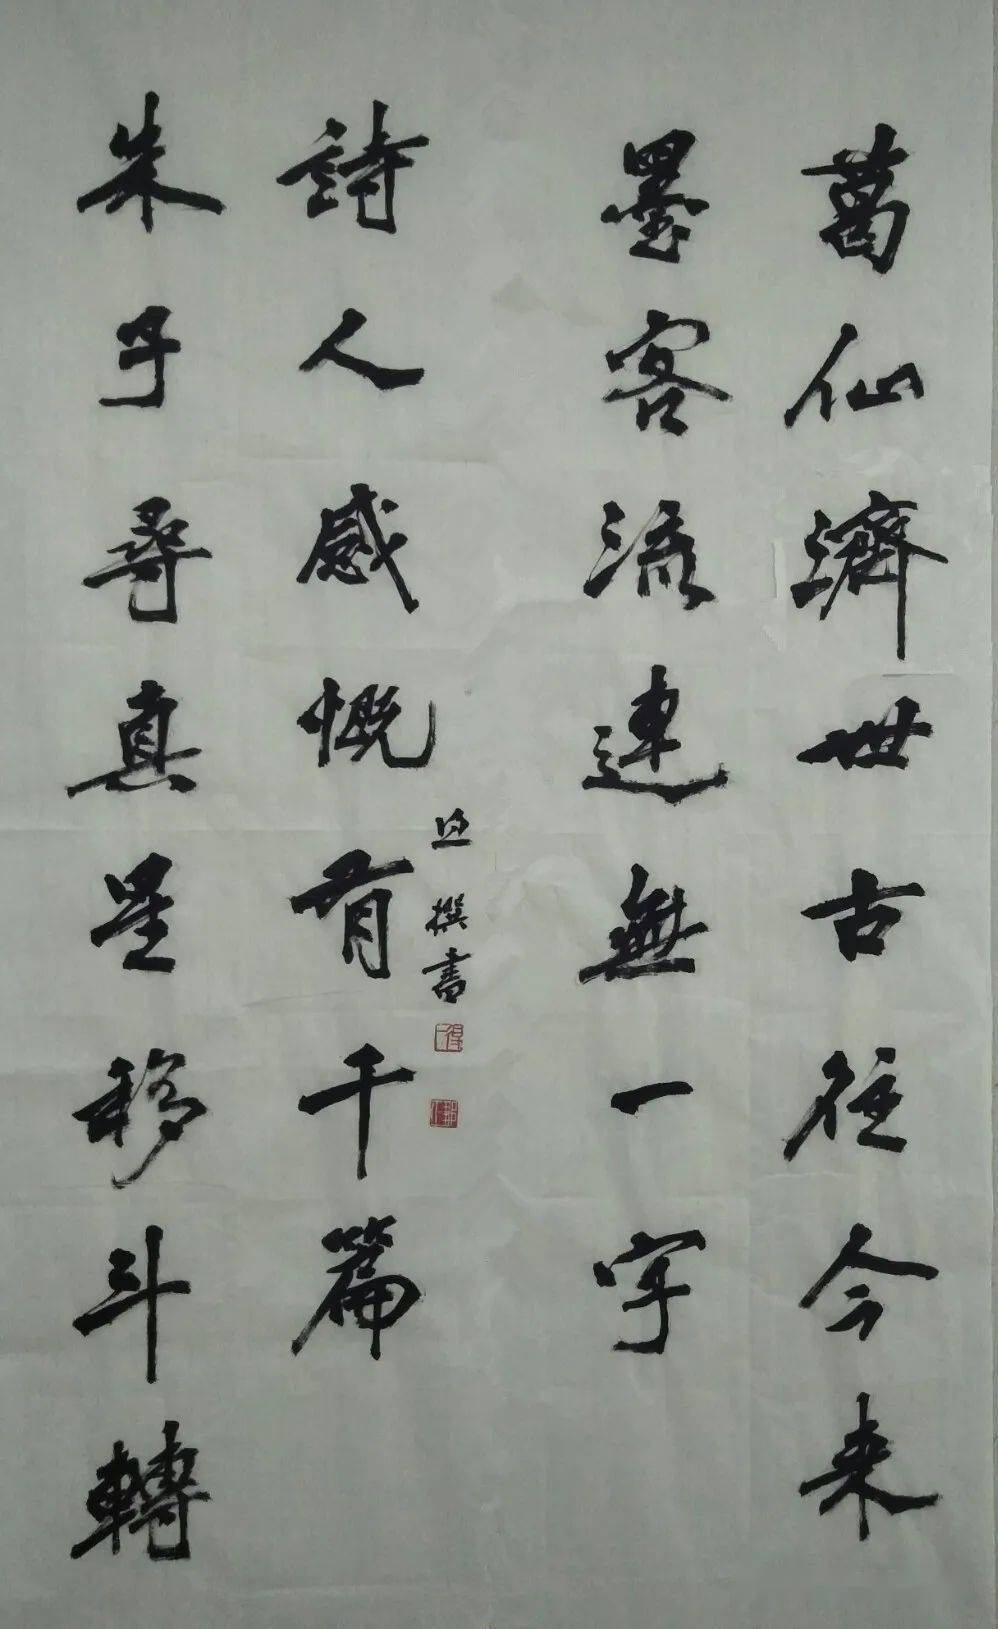 葛仙濟世古往今来
墨客流連無一字
朱子尋真星移斗轉
詩人感慨有千篇
撰書